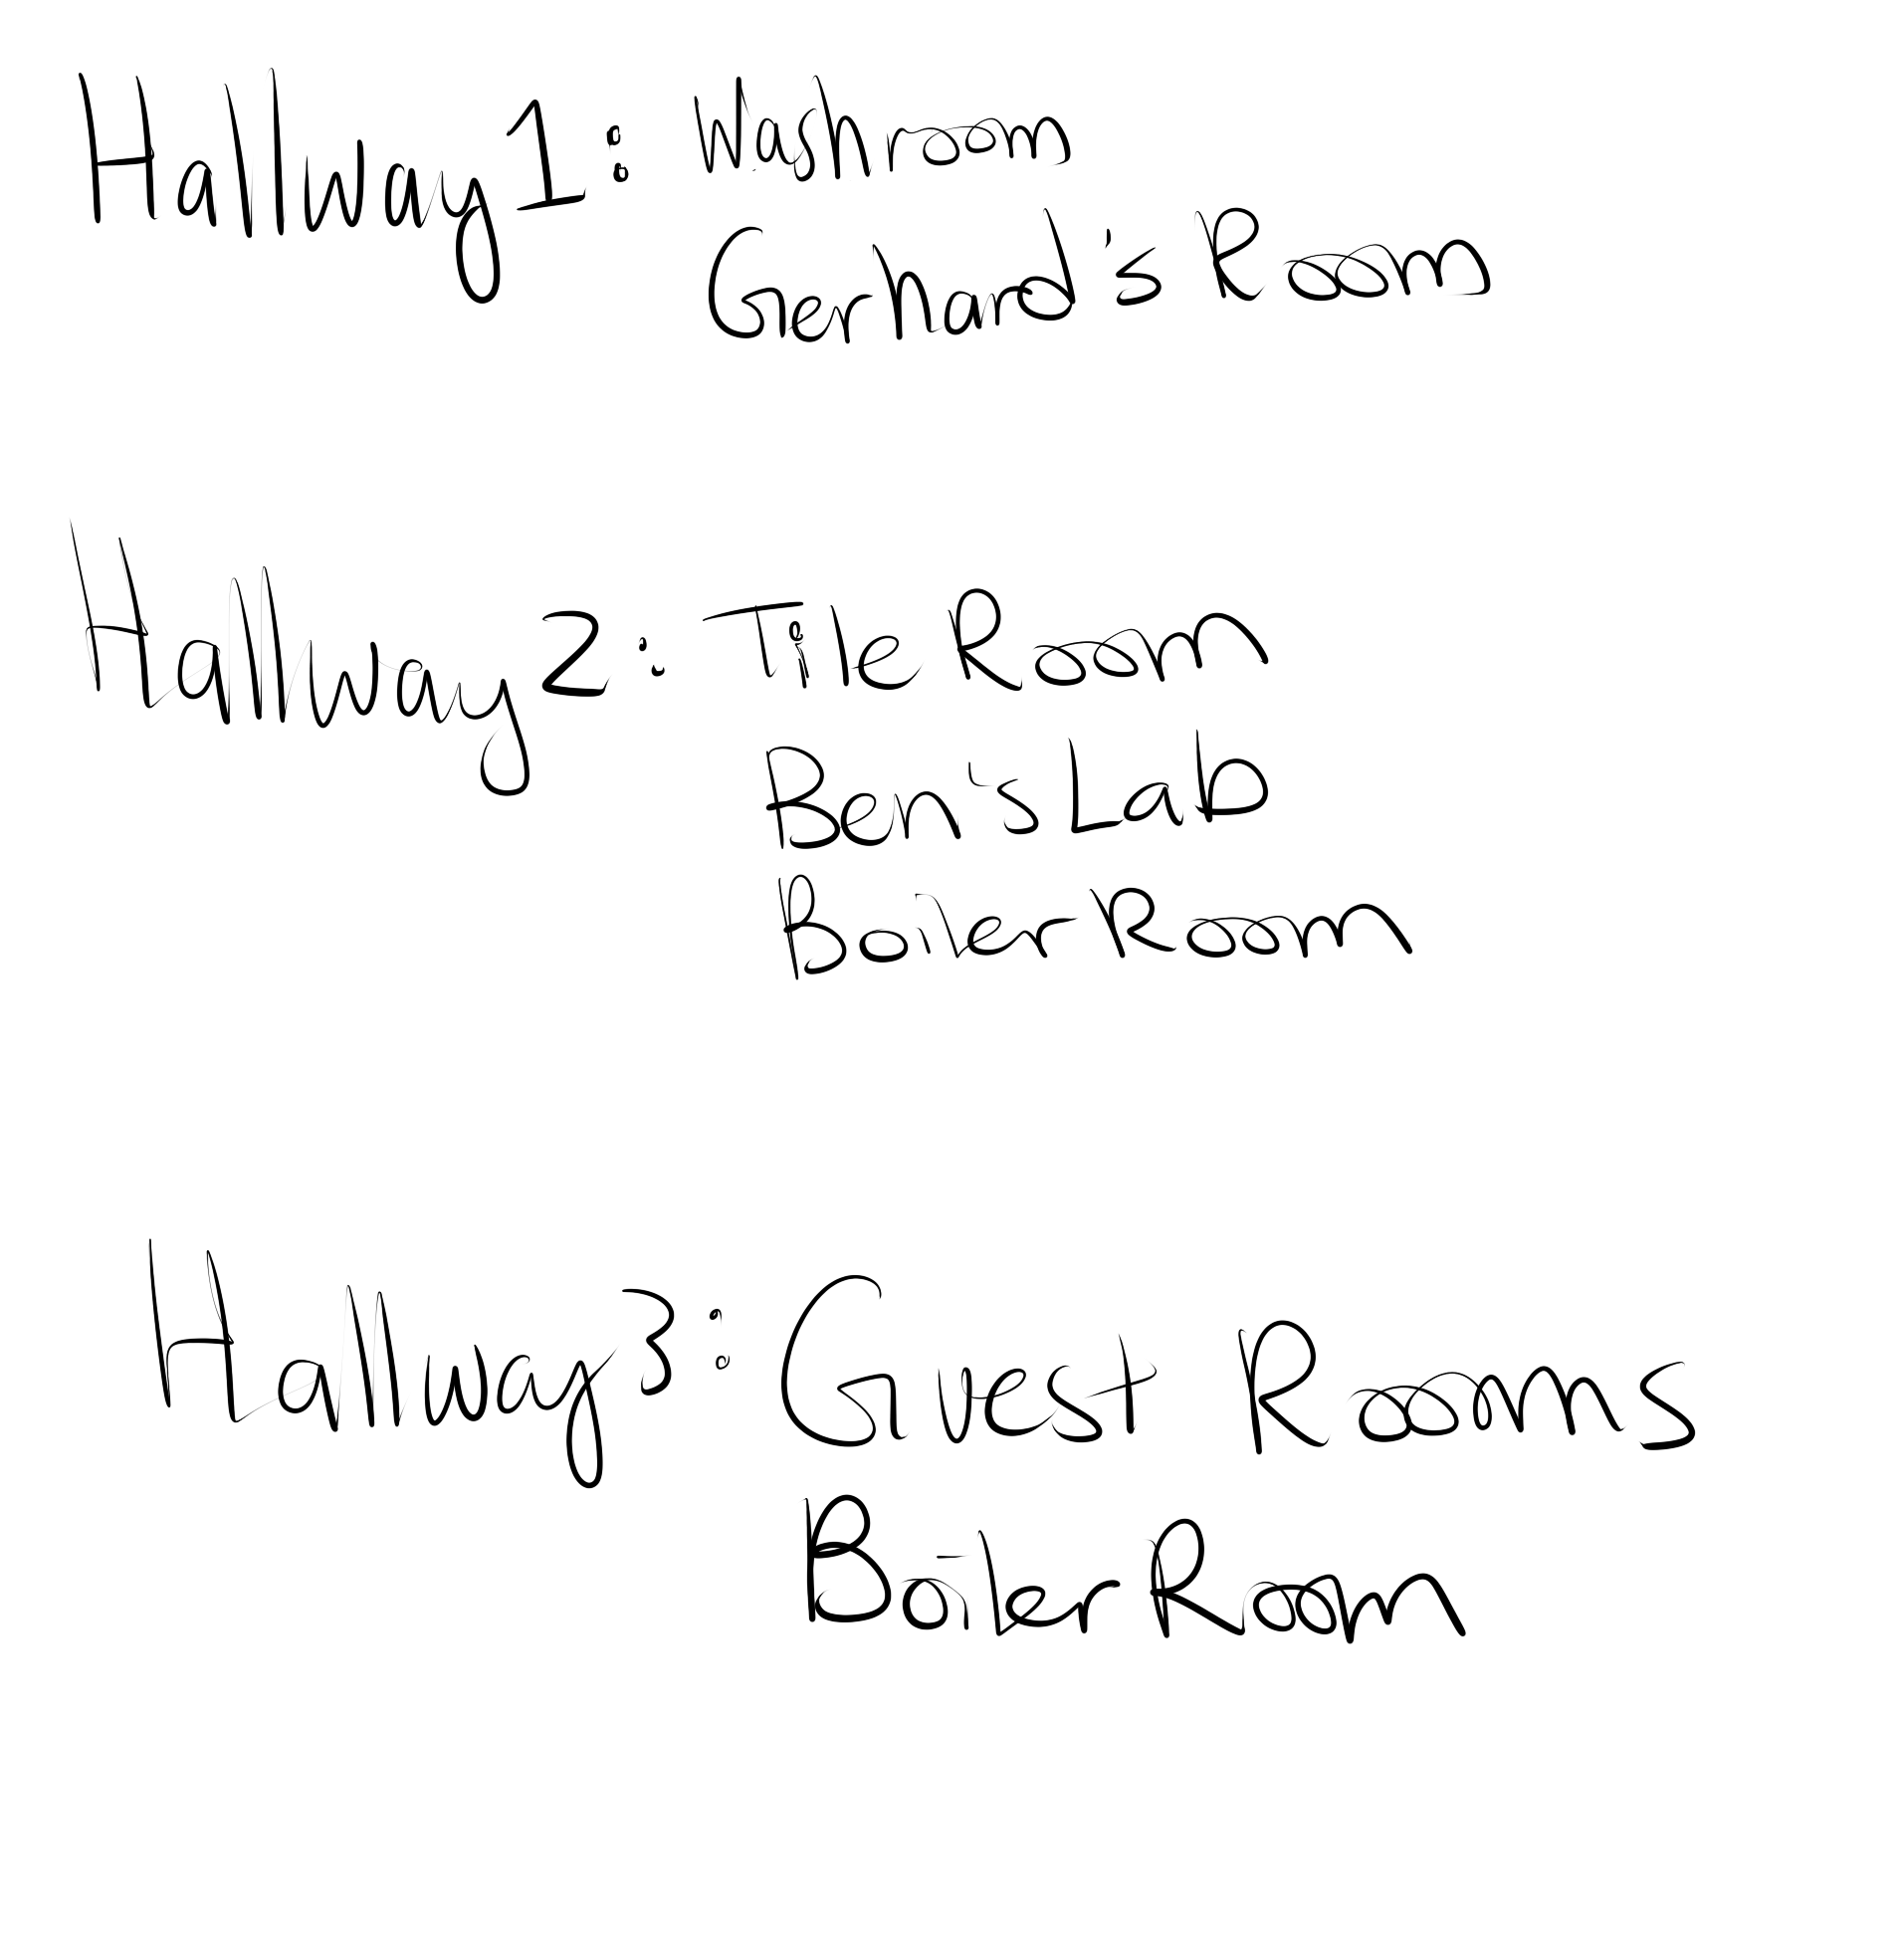 Hallway 1: Washroom
Gerhard's Room
Hallway 2: Tile Room
Ben's Lab
Boiler Room
Hallway 3: Guest Rooms
Boiler Room